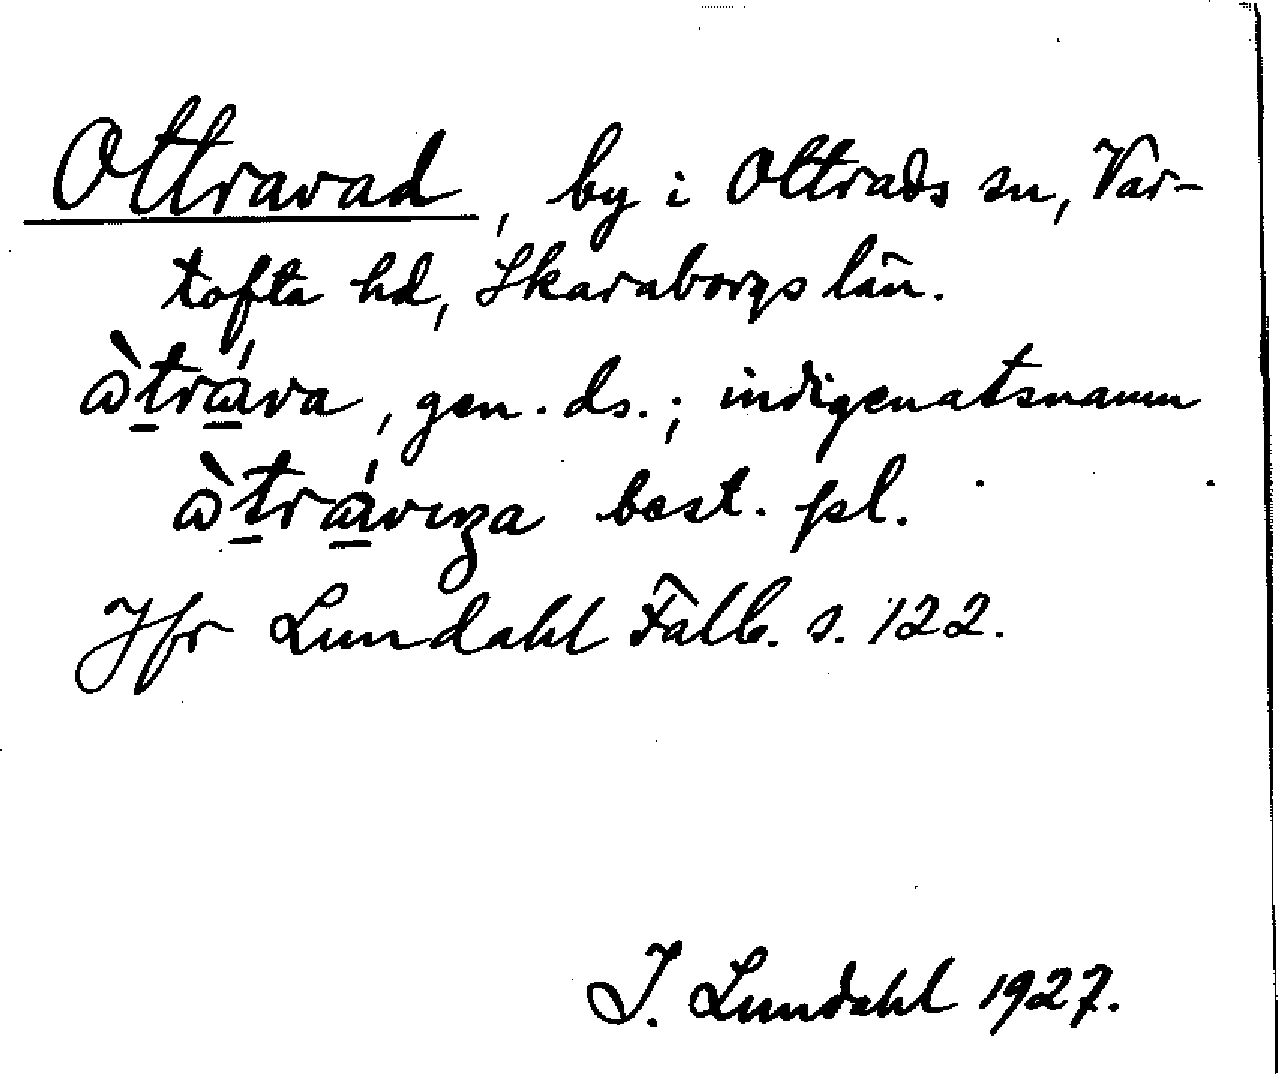 Ottravad, by i Ottrads sn, Var-
tofta hd, Skaraborgs län.
àtráva, gen. ds.; indigenatsnamn
àtrávıŋa best. pl.
Jfr Lundahl Falb. s. 122.
I. Lundahl 1927.